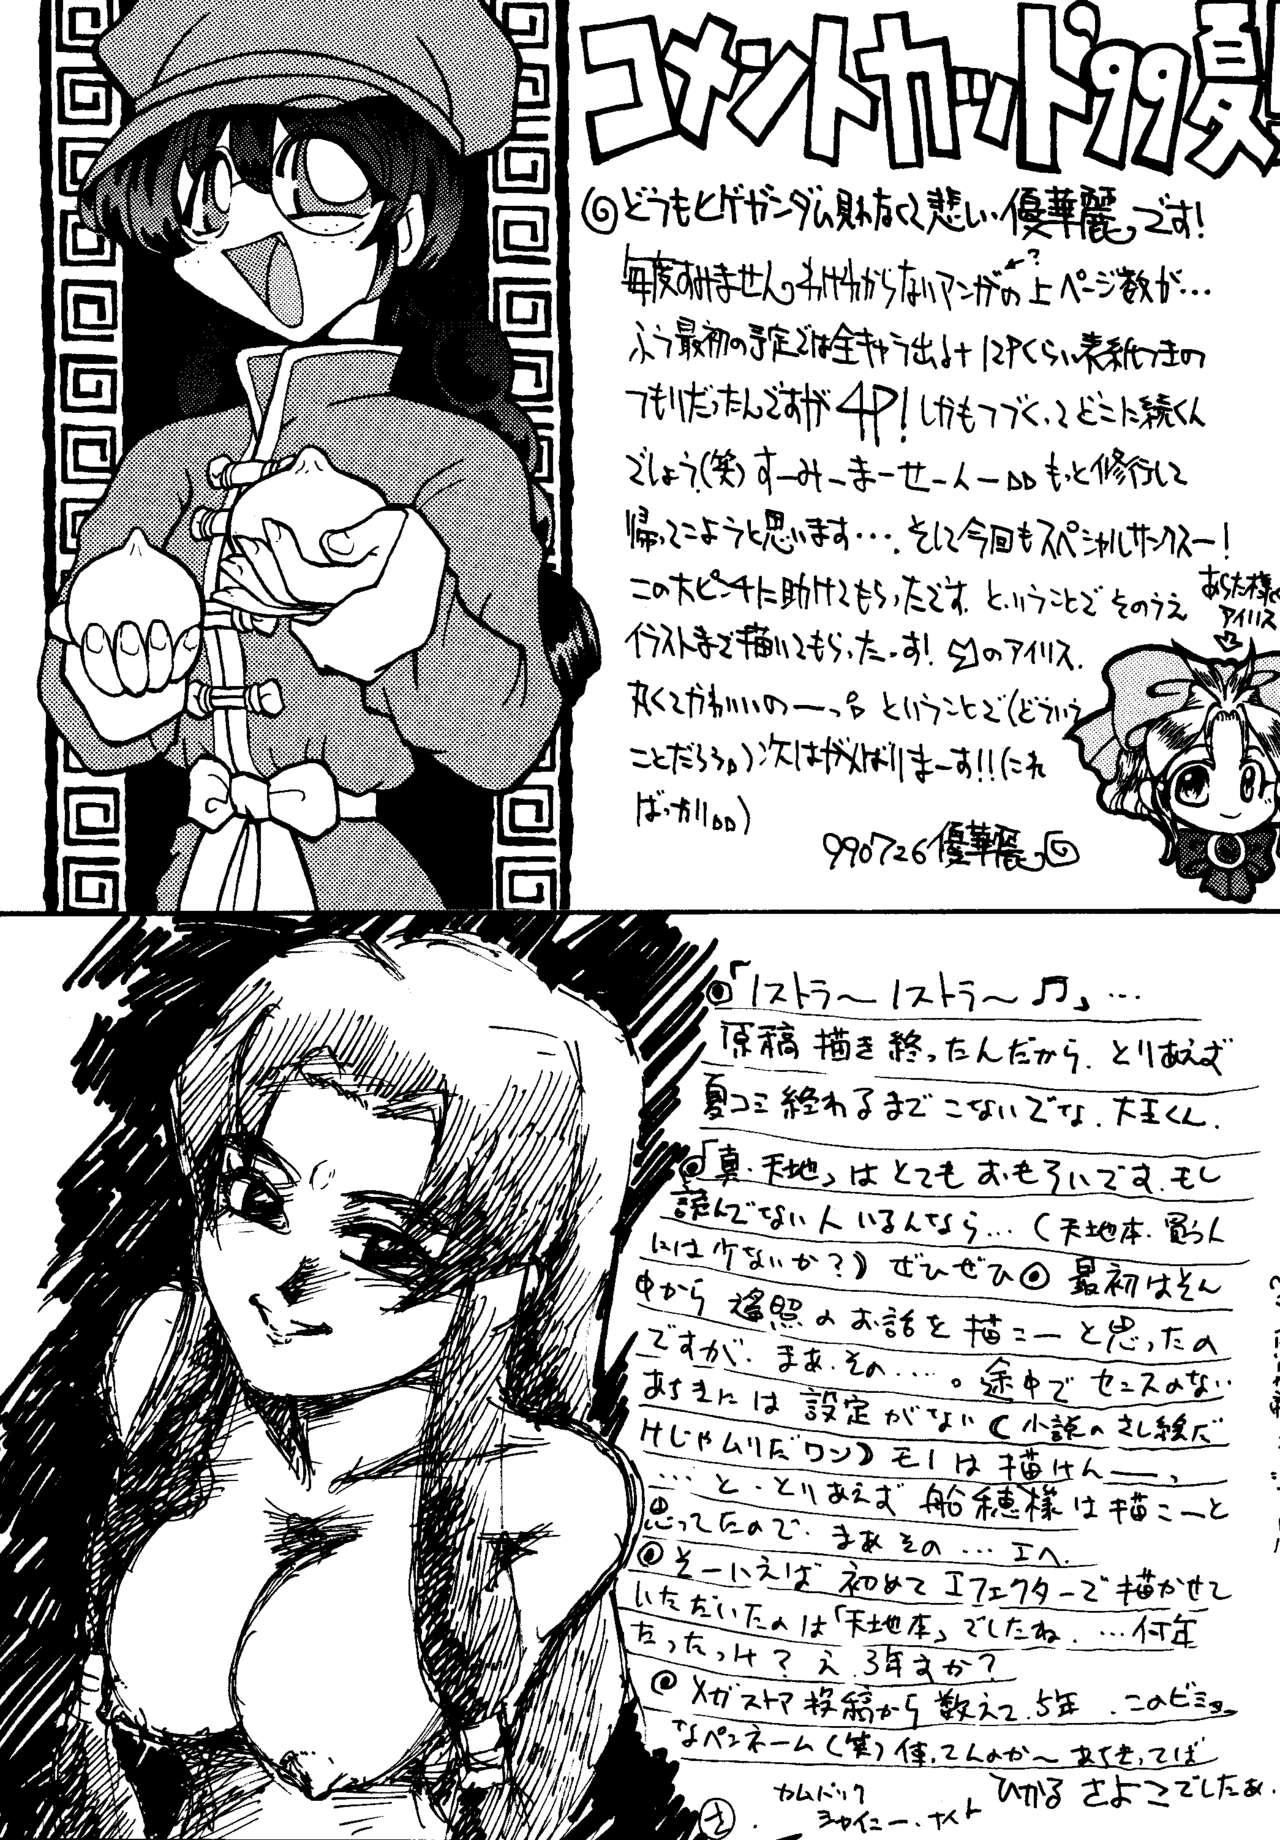 コメントカット'99夏!
どうもヒゲガンダム見れなくて悲しい優華麗っです!
毎度すみませんっわけわからないアンガの上ページ数が…
?
ふう最初の予定では全キャラ出る+12Pくらい表紙つきの
つもりだったんですが4P!しかもつづくってどこに続くん
でしょう(笑)すーみーまーせーんー もっと修行して
帰ってこようと思います….そして今回もスペシャルサンクスー!
この大ピンチに助けてもらったです.ということでそのうえ
イラストまで描いてもらったっす! のアイリス.
丸くてかわいいのーっ ということで(どういう
ことだろう)次はがんばりまーす!!(これ
ばっかり)
990726優華麗っ
あらた様の
アイリス
「ノストラ〜ノストラ〜♬」…
原稿描き終ったんだから.とりあえず
夏コミ終わるまでこないでな.大王くん.
「真・天地」はとてもおもろいです.もし
読んでない人いるんなら…(天地本.買う人
には少ないか?)ぜひぜひ◎ 最初はそん
中から遙照のお話を描こーと思ったの
ですが.まあ.その….。途中でセンスのない
あちきには設定がない(小説のさし絵だ
けじゃムリだワン)モノは描けんーっ
…と.とりあえず船穂様は描こーと
思ってたので.まあその…エヘ.
そーいえば初めてエフェクターで描かせて
いただいたのは「天地本」でしたね.…何年
たったっけ?え.3年まか?
メガストア投稿から数えて.5年.このビミョー
なペンネーム(笑)使ってんのか〜あちきってば
ひかる さよこでしたぁ.
カムバック
シャイニー・ナイト
さ.